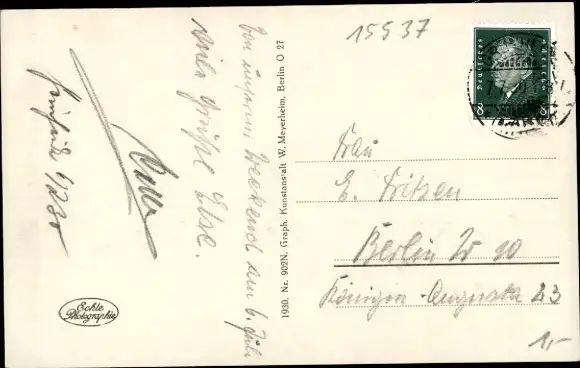 Von unserm Weekend am 6. Juli
viele Grüße Else.
6/7 30
Echte
Photographie
1930. Nr. 902N. Graph. Kunstanstalt W. Meyerheim, Berlin O 27
15537
Deutsches Reich
8 8
Frau
E. Fritzen
Berlin W 10
Königin-Augusta 23
1,-